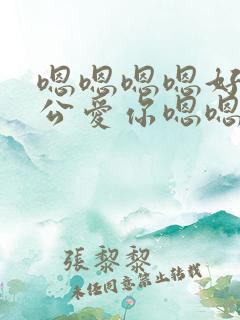 嗯嗯嗯嗯好
公爱你嗯嗯
張黎黎
未经同意禁止转载